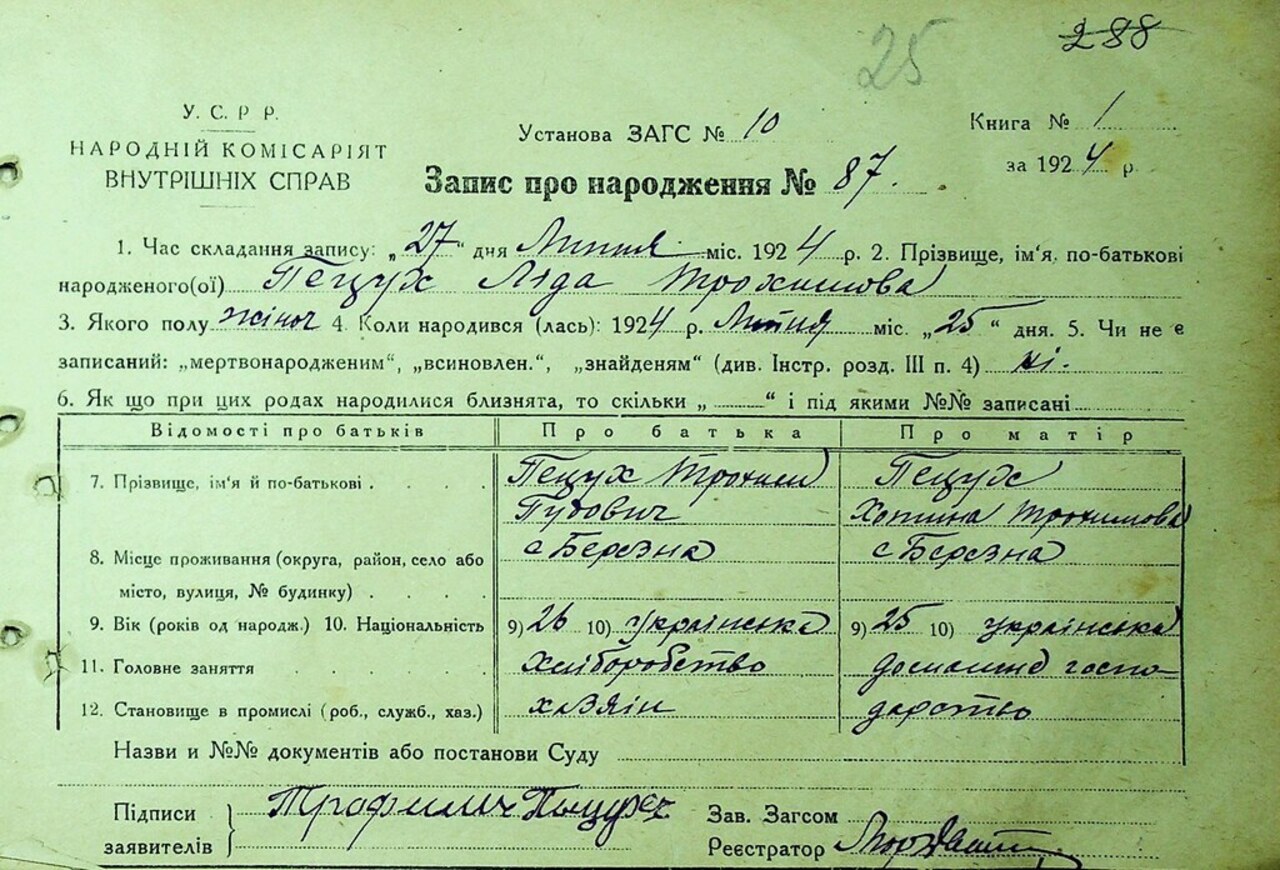 25
288
У. С. Р Р.
НАРОДНІЙ КОМІСАРІЯТ
ВНУТРІШНІХ СПРАВ
Установа ЗАГС № 10
Книга № 1
за 1924 р.
Запис про народження № 87.
1. Час складання запису: „27“ дня Липня міс. 1924 р. 2. Прізвище, ім'я, по-батькові
народженого(ої) Пецух Ліда Трохимова
3. Якого полу жіноч 4. Коли народився (лась): 1924 р. Липня міс. „25“ дня. 5. Чи не є
записаний: „мертвонародженим“, „всиновлен.“, „знайденям“ (див. Інстр. розд. III п. 4) ні.
6. Як що при цих родах народилися близнята, то скільки „ “ і під якими №№ записані
Відомості про батьків Про батька Про матір
7. Прізвище, ім'я й по-батькові . . . . Пецух Трохим Пецух
Гудович Хотина Трохимова
8. Місце проживання (округа, район, село або с Березна с Березна
місто, вулиця, № будинку) . . . .
9. Вік (років од народж.) 10. Національність 9) 26 10) українська 9) 25 10) українська
11. Головне заняття . . . . хліборобство домашнє госпо-
12. Становище в промислі (роб., служб., хаз.) хазяїн дарство
Назви и №№ документів або постанови Суду
Підписи
заявителів
Трофимъ Пецух
Зав. Загсом
Реєстратор